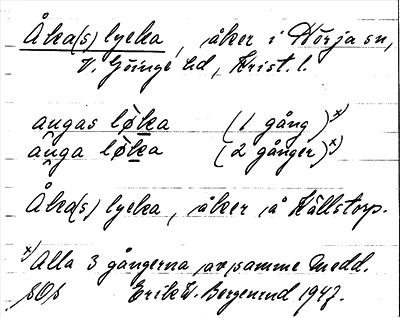 Åka(s) lycka, åker i Hörja sn,
V. Göinge hd, Krist. l.
aŋgas lo̊ka (1 gång) x)
aŋga lo̊ka (2 gånger) x)
Åka(s) lycka, åker å Hällstorp.
x) Alla 3 gångerna av samme medd.
Erik W. Bergenrud 1947.